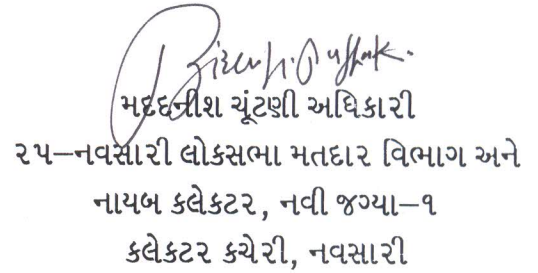 મદદનીશ ચૂંટણી અધિકારી
૨૫–નવસારી લોકસભા મતદાર વિભાગ અને
નાયબ કલેકટર, નવી જગ્યા–૧
કલેકટર કચેરી, નવસારી